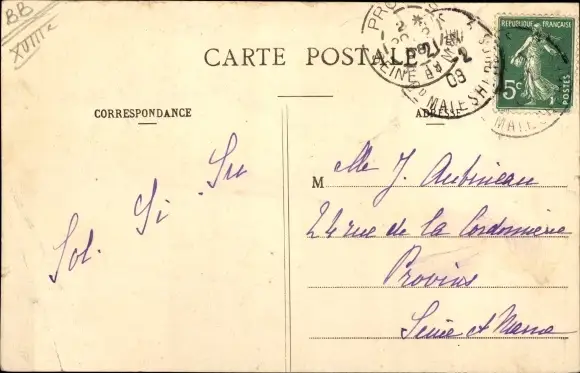 BB
XVIIIe
CARTE POSTALE
CORRESPONDANCE
ADRESSE
RÉPUBLIQUE FRANÇAISE
5c
POSTES
PRO
SEINE
22
09
MALESH
MALES
Sol. Si. Su
M lle J. Aubineau
24 rue de la Cordonnerie
Provins
Seine et Marne